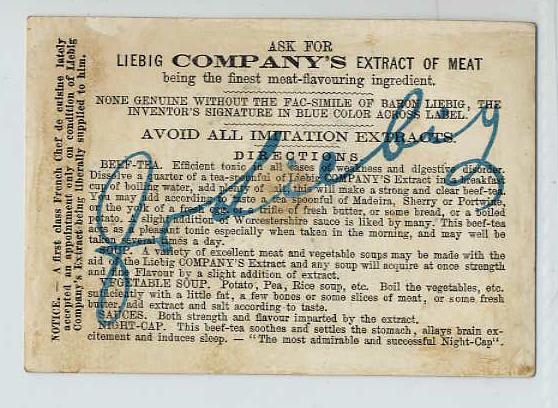 ASK FOR
LIEBIG COMPANY'S EXTRACT OF MEAT
being the finest meat-flavouring ingredient.
NONE GENUINE WITHOUT THE FAC-SIMILE OF BARON LIEBIG, THE
INVENTOR'S SIGNATURE IN BLUE COLOR ACROSS LABEL.
AVOID ALL IMITATION EXTRACTS.
DIRECTIONS.
BEEF-TEA. Efficient tonic in all cases of weakness and digestive disorder.
Dissolve a quarter of a tea-spoonful of Liebig COMPANY'S Extract in a breakfast
cup of boiling water, add plenty of salt this will make a strong and clear beef-tea,
you may add according to taste a tea spoonful of Madeira, Sherry or Portwine,
or the yolk of a fresh egg, a trifle of fresh butter, or some bread, or a boiled
potato. A slight addition of Worcestershire sauce is liked by many. This beef-tea
acts as a pleasant tonic especially when taken in the morning, and may well be
taken several times a day.
SOUPS. A variety of excellent meat and vegetable soups may be made with the
aid of the Liebig COMPANY'S Extract and any soup will acquire at once strength
and fine Flavour by a slight addition of extract.
VEGETABLE SOUP. Potato, Pea, Rice soup, etc. Boil the vegetables, etc.
sufficiently with a little fat, a few bones or some slices of meat, or some fresh
butter, add extract and salt according to taste.
SAUCES. Both strength and flavour imparted by the extract.
NIGHT-CAP. This beef-tea soothes and settles the stomach, allays brain ex-
citement and induces sleep. — "The most admirable and successful Night-Cap".
NOTICE. A first class French Chef de cuisine lately
accepted an appointment only on condition of Liebig
Company's Extract being liberally supplied to him.
J v Liebig